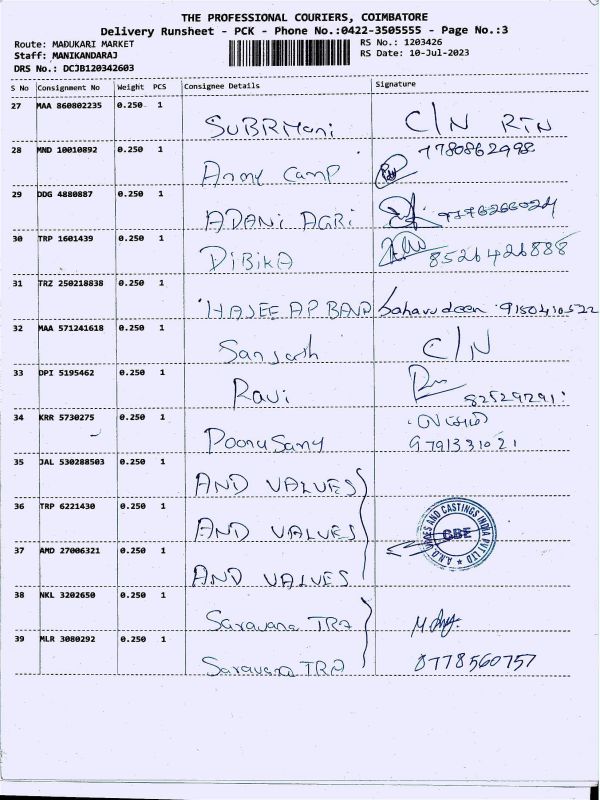 THE PROFESSIONAL COURIERS, COIMBATORE
Delivery Runsheet - PCK - Phone No.:0422-3505555 - Page No.:3
Route: MADUKARI MARKET RS No.: 1203426
Staff: MANIKANDARAJ RS Date: 10-Jul-2023
DRS No.: DCJB120342603
S No Consignment No Weight PCS Consignee Details Signature
27 MAA 860802235 0.250 1 SUBRMani C/N RTN
28 MND 10010892 0.250 1 Army Camp 7780862998
29 DDG 4880887 0.250 1 ADANi AGRi
30 TRP 1601439 0.250 1 DiBiKA 8526426888
31 TRZ 250218838 0.250 1 HAJEE AP BAND Sahavudeen 9150410522
32 MAA 571241618 0.250 1 Santosh C/N
33 DPI 5195462 0.250 1 Ravi 82529291
34 KRR 5730275 0.250 1 PoonuSamy 9791331021
35 JAL 530288503 0.250 1 AND VALVES
36 TRP 6221430 0.250 1 AND VALVES
37 AMD 27006321 0.250 1 AND VALVES
AND CASTINGS INDIA PVT LTD
CBE
38 NKL 3202650 0.250 1 Saravana TRA
39 MLR 3080292 0.250 1 Saravana TRA 8778560757